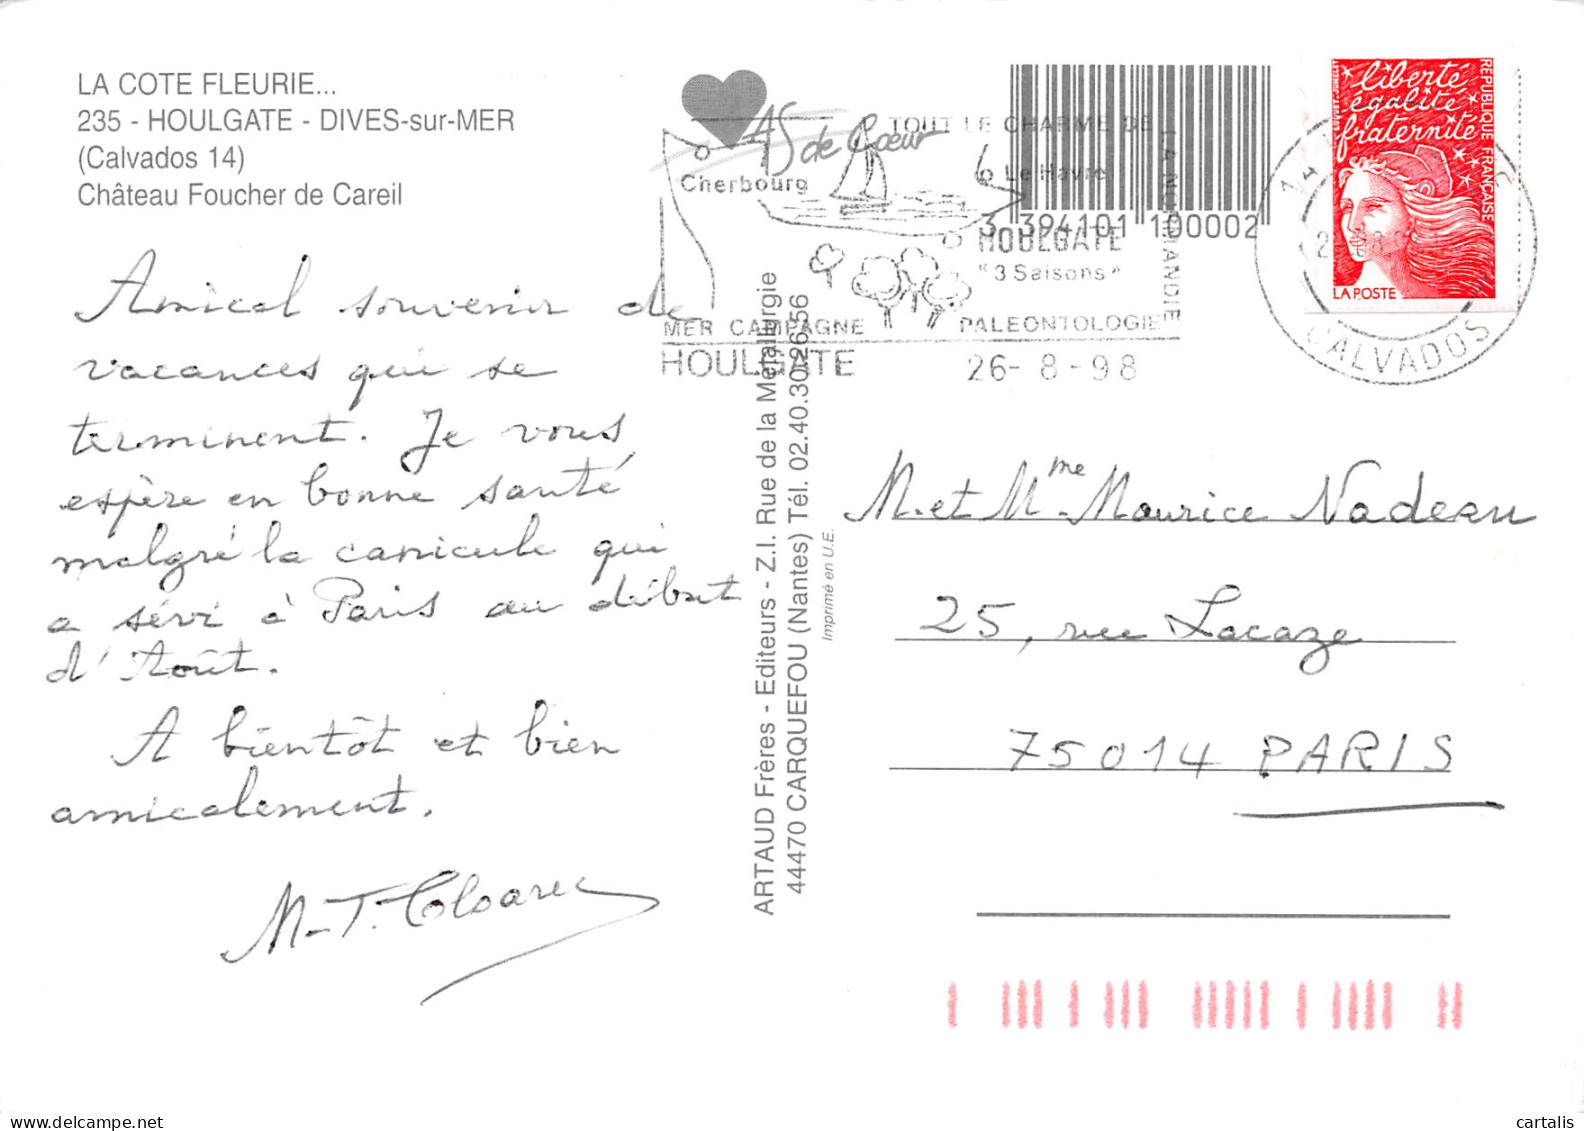 LA COTE FLEURIE...
235 - HOULGATE - DIVES-sur-MER
(Calvados 14)
Château Foucher de Careil
Amical souvenir de
vacances qui se
terminent. Je vous
espère en bonne santé
malgré la canicule qui
a sévi à Paris au début
d'Août.
A bientôt et bien
amicalement.
M-T.
ARTAUD Frères - Editeurs - Z.I. Rue de la Métallurgie
44470 CARQUEFOU (Nantes) Tél. 02.40.30.26.56
Imprimé en U.E.
AS de Cœur
3 394101 100002
TOUT LE CHARME DE
LA NORMANDIE
Cherbourg
Le Havre
HOULGATE
"3 Saisons"
MER CAMPAGNE PALEONTOLOGIE
HOULGATE 26-8-98
liberté
égalité
fraternité
REPUBLIQUE FRANÇAISE
LA POSTE
14
CALVADOS
M. et Mme Maurice Nadeau
25, rue Lacaze
75014 PARIS
cartalis